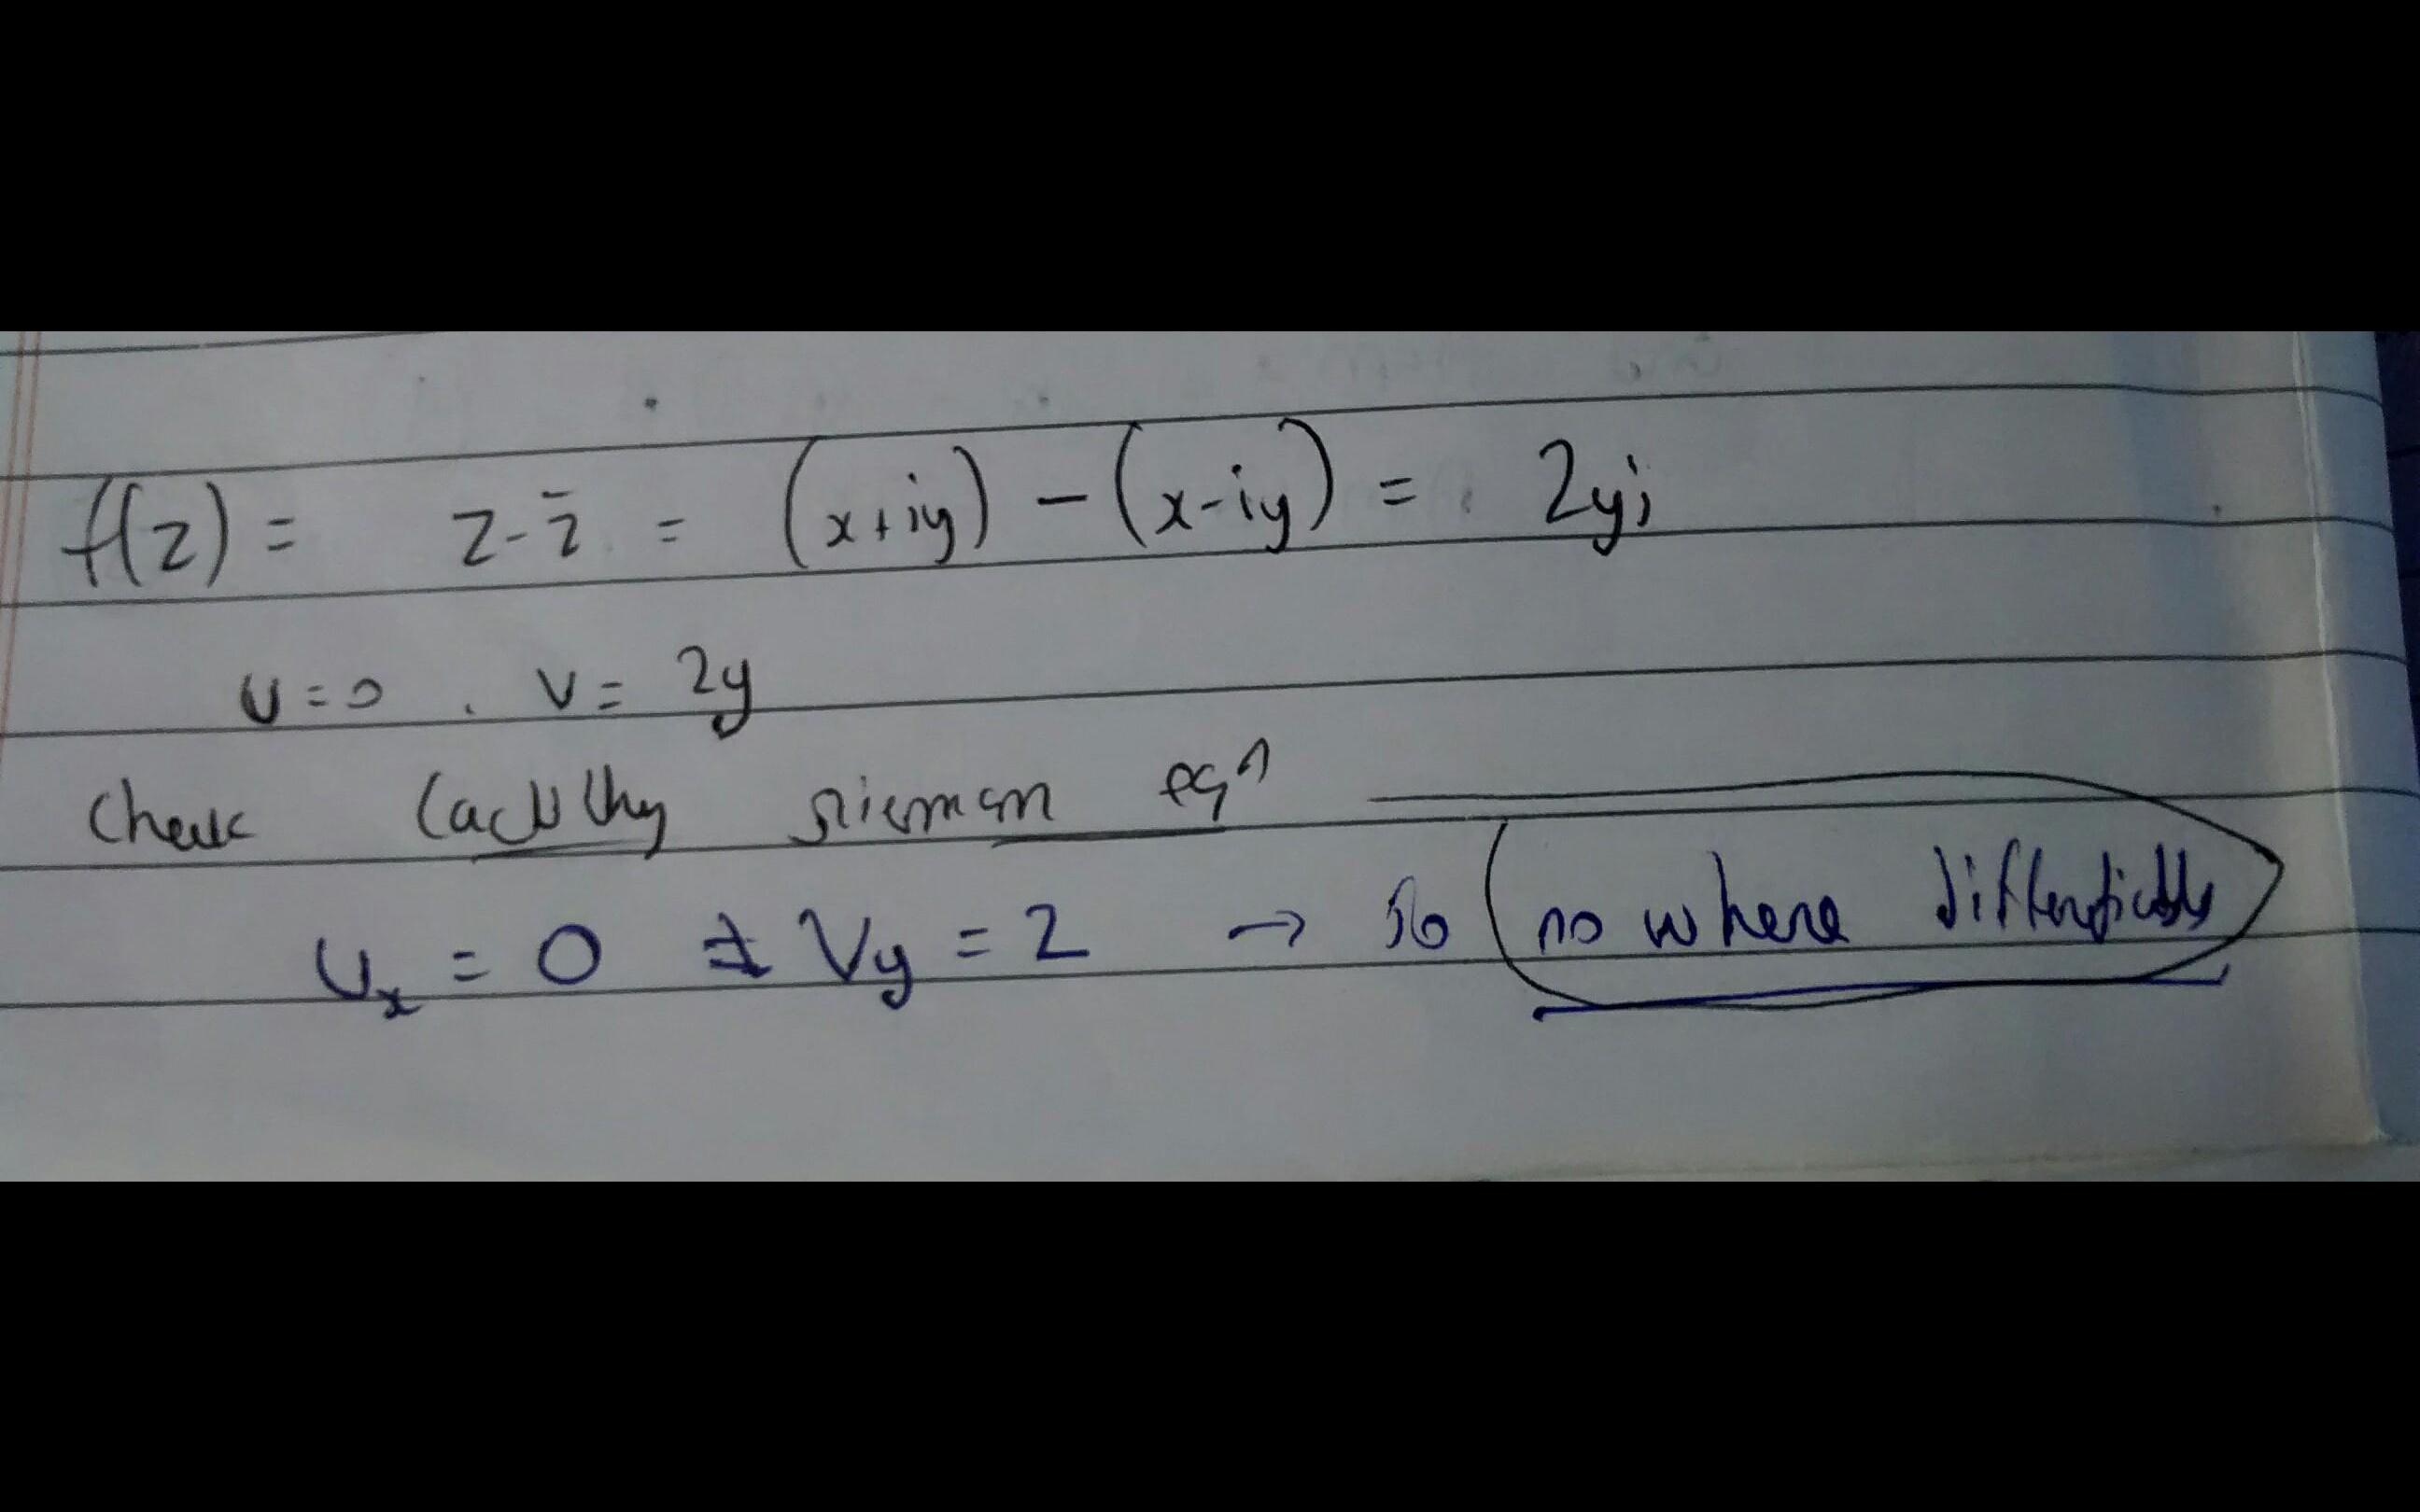 f(z) = z - z̄ = (x+iy) - (x-iy) = 2yi
u = 0 . v = 2y
Check Cauchy rieman eqn
Ux = 0 ≠ Vy = 2 → so no where differentiable